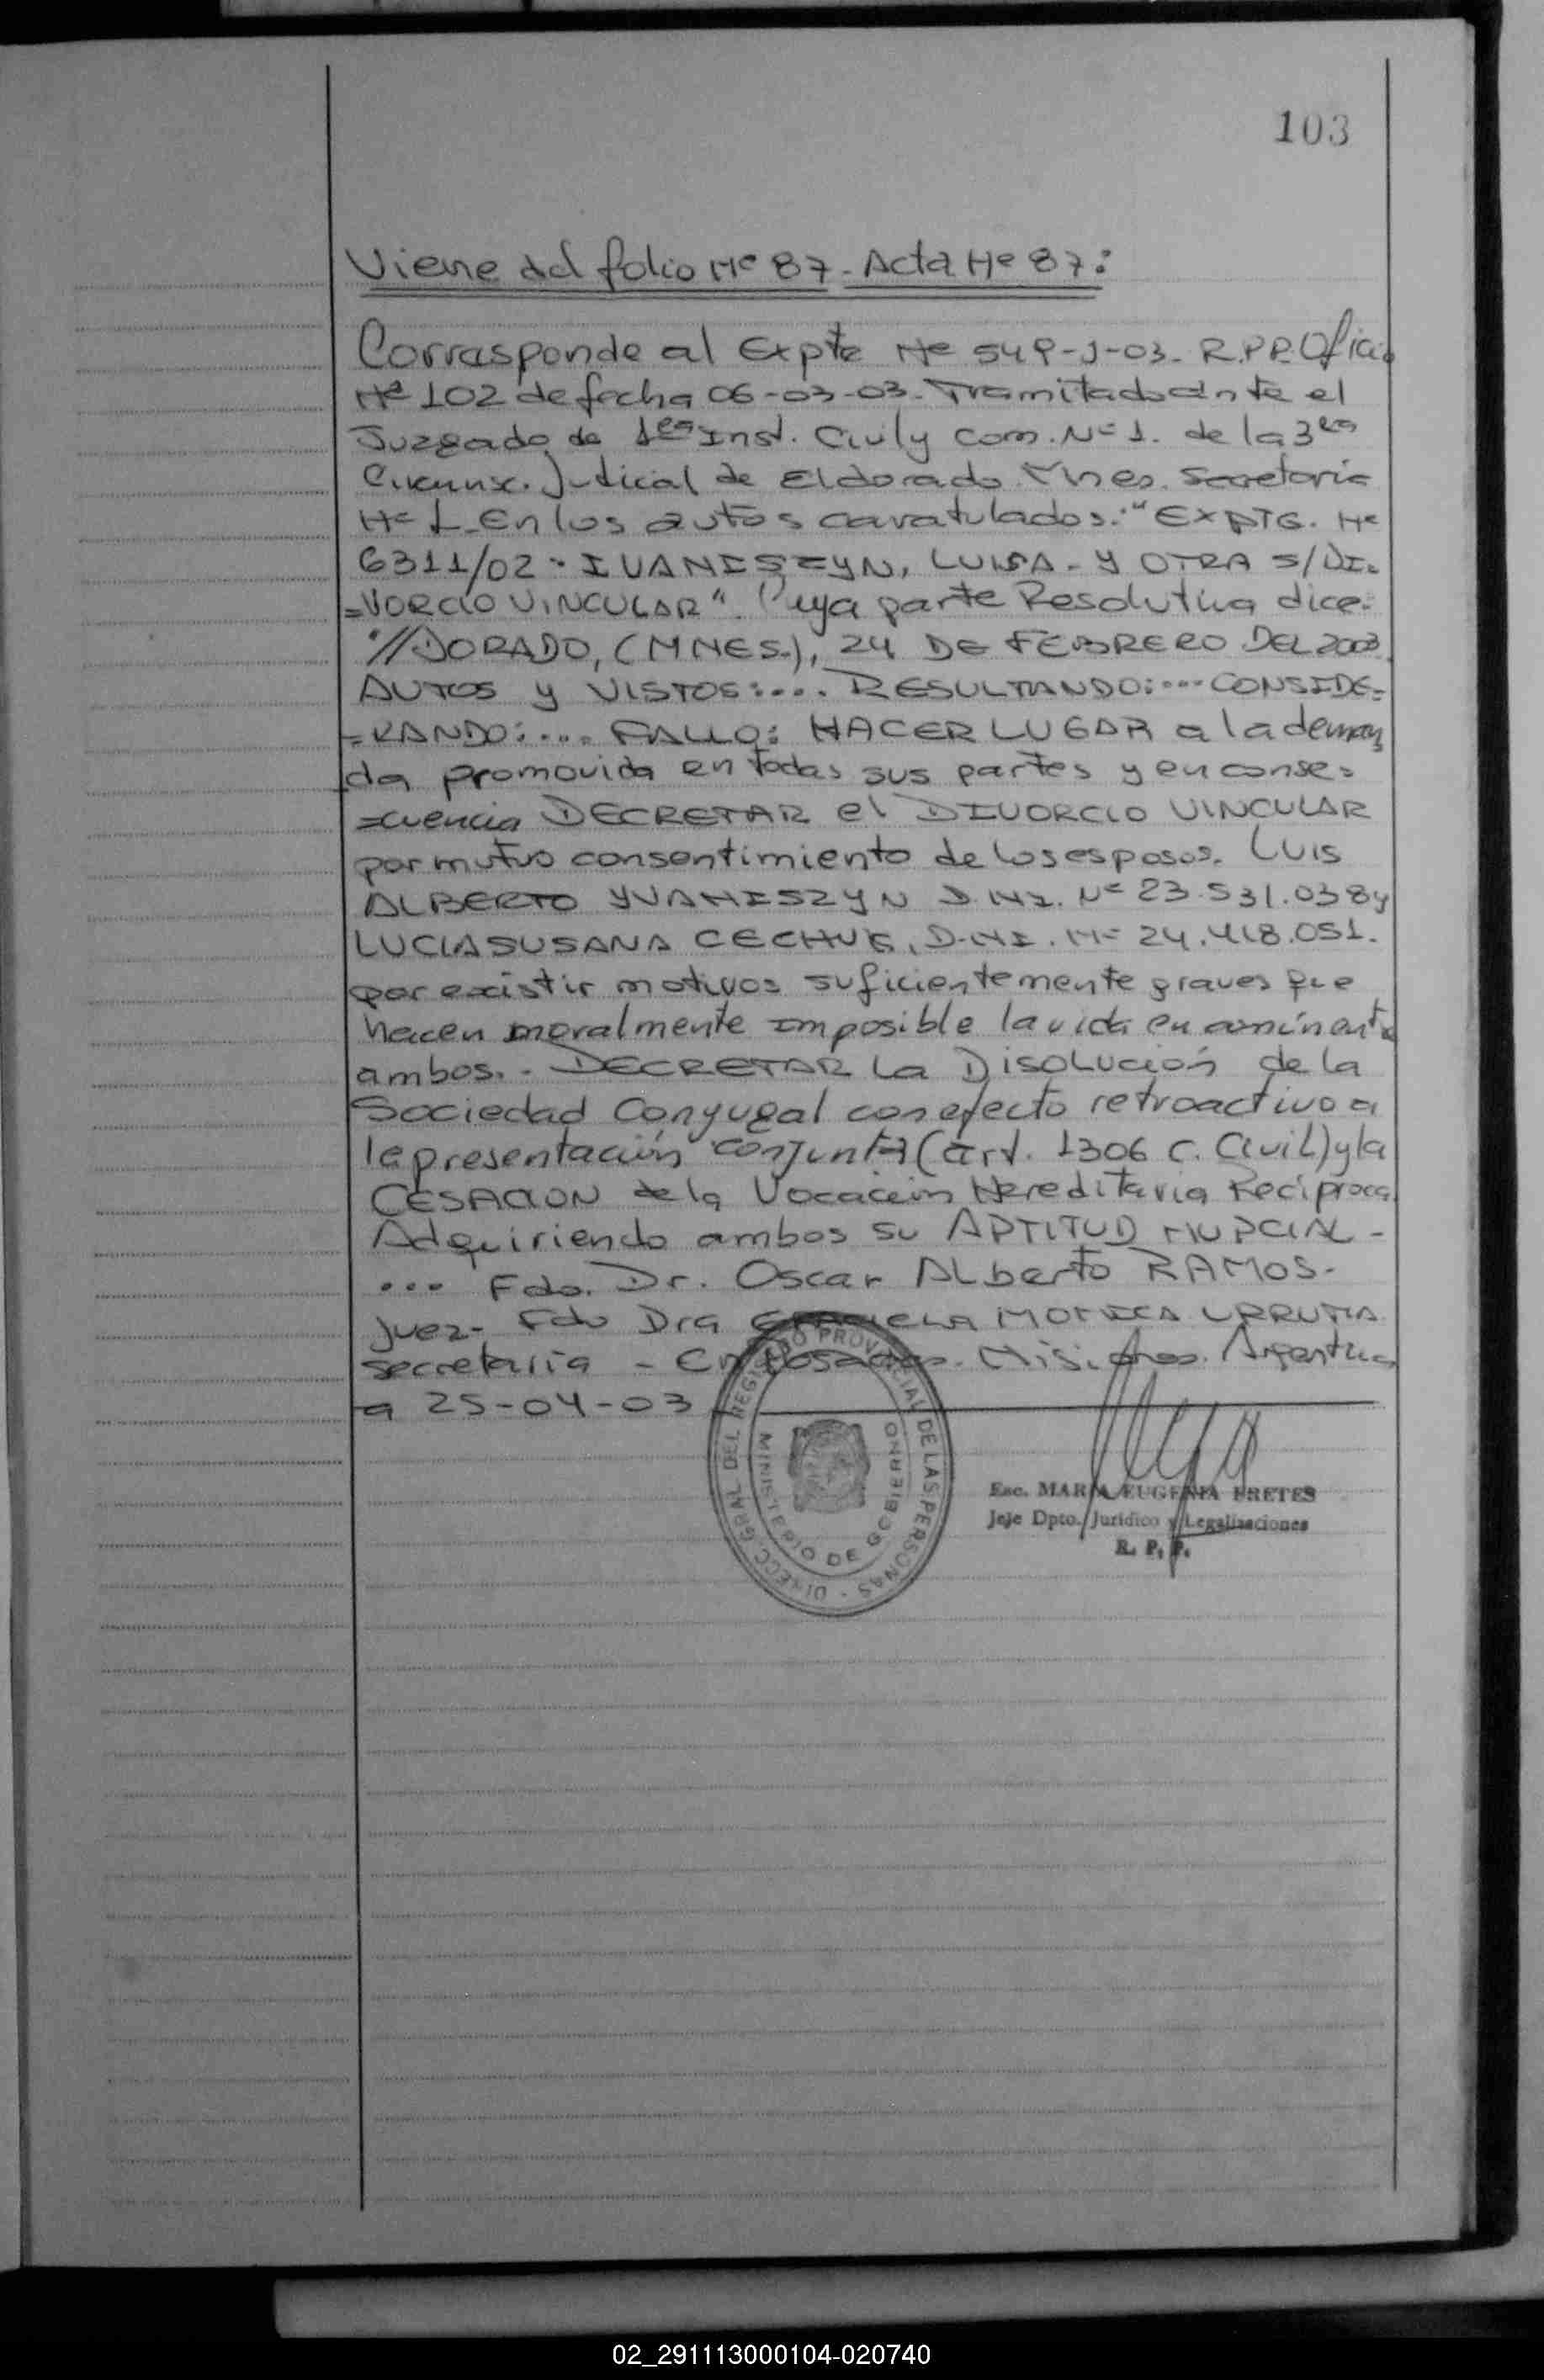 103
Viene del folio Nº 87 - Acta Nº 87:
Corresponde al Expte Nº 549-J-03. R.P.P. Oficio
Nº 102 de fecha 06-03-03. Tramitado ante el
Juzgado de 1era Inst. Civil y Com. Nº 1. de la 3era
Circunsc. Judicial de Eldorado Mnes. Secretaria
Nº 1. En los autos caratulados: "EXPTE. Nº
6311/02 - IVANISZYN, LUISA - Y OTRA S/ DI=
=VORCIO VINCULAR". Cuya parte Resolutiva dice:
"//DORADO, (MNES.), 24 DE FEBRERO DEL 2003.
AUTOS y VISTOS:.... RESULTANDO:... CONSIDE=
=RANDO:.... FALLO: HACER LUGAR a la deman
da promovida en todas sus partes y en conse=
=cuencia DECRETAR el DIVORCIO VINCULAR
por mutuo consentimiento de los esposos. LUIS
ALBERTO YVANISZYN D.N.I. Nº 23.531.038 y
LUCIA SUSANA CECHUK, D.N.I. Nº 24.418.051.
por existir motivos suficientemente graves que
hacen moralmente imposible la vida en común ente
ambos. - DECRETAR La Disolución de la
Sociedad Conyugal con efecto retroactivo a
la presentación conjunta (art. 1306 C. Civil) y la
CESACION de la Vocación Hereditaria Recíproca.
Adquiriendo ambos su APTITUD NUPCIAL -
... Fdo. Dr. Oscar Alberto RAMOS.
Juez - Fdo Dra GRACIELA MONICA URRUTIA
secretaria - En Posadas. Misiones. Argentina
a 25-04-03
DIRECC. GRAL. DEL REGISTRO PROVINCIAL DE LAS PERSONAS -
MINISTERIO DE GOBIERNO
Esc. MARIA EUGENIA FRETES
Jefe Dpto. Jurídico y Legalizaciones
R. P. P.
02_291113000104-020740